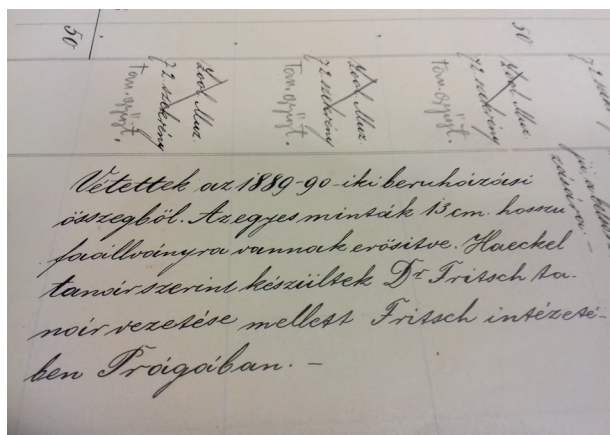 50
50
Zool Muz.
72. szekrény
Tan. gyüjt.
Zool Muz
72. szekrény
Tan. gyüjt.
Zool Muz.
72. szekrény
Tan. gyüjt.
Vétettek az 1889-90-iki beruházási
összegből. Az egyes minták 13 cm. hosszu
faállványra vannak erősitve. Haeckel
tanár szerint készültek Dr Fritsch ta-
nár vezetése mellett Fritsch intézeté-
ben Prágában. -